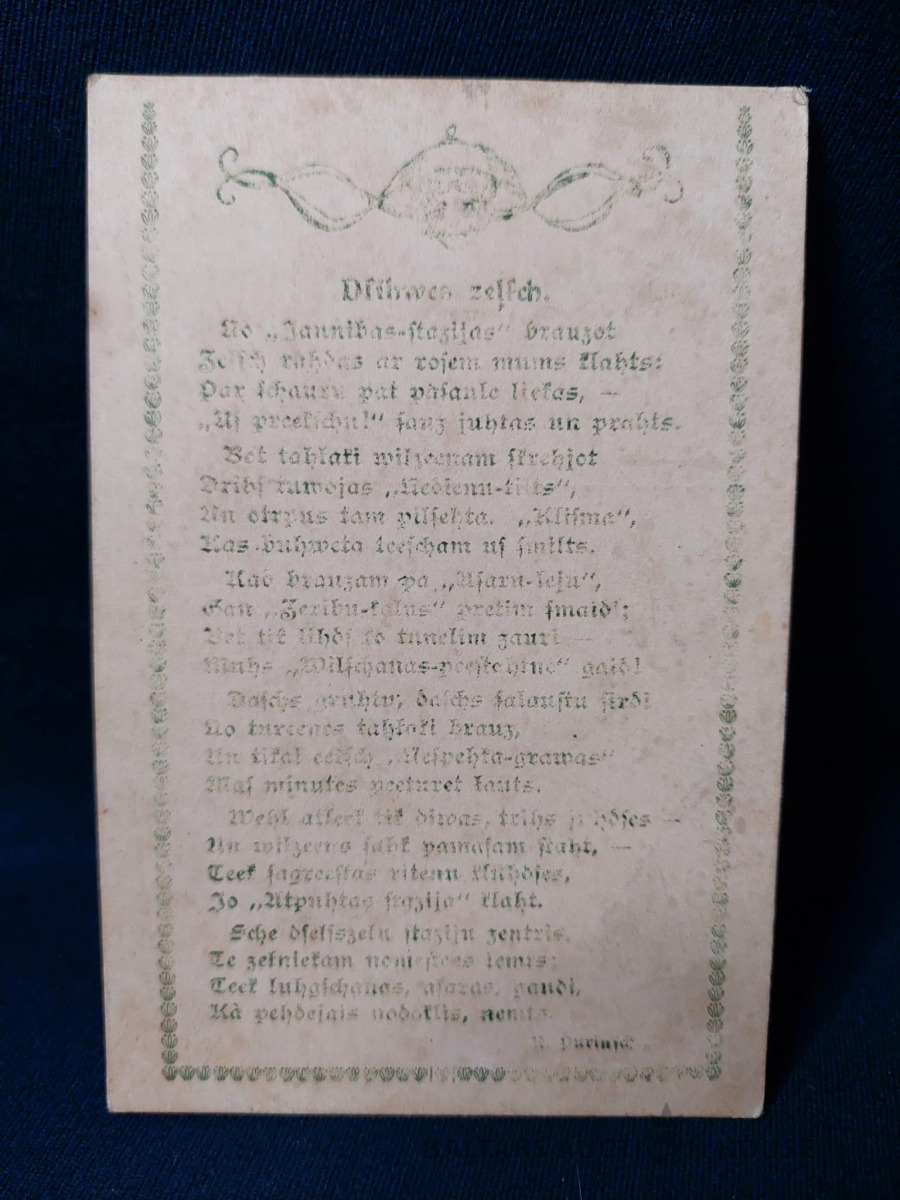 Dſihwes zelſch.
No „Jaunibas-ſtazijas“ brauzot
Zelſch rahdas ar roſem mums klahts:
Par ſchauru pat paſaule liekas, —
„Uſ preekſchu!“ ſauz juhtas un prahts.
Bet tahlaki wilzeenam ſkrehjot
Drihſ tuwojas „Nedienu-tilts“,
Un otrpus tam pilſehta. „Kliſma“,
Kas buhweta teeſcham uſ ſmilts.
Kad brauzam pa „Aſaru-leju“,
Gan „Zeribu-kalns“ pretim ſmaida;
Bet tik lihdſ to tunelim zauri —
Muhs „Wilſchanas-peeſtahtne“ gaida!
Daſchs gruhtu, daſchs ſalauſtu ſirdi
No tureenes tahlaki brauz,
Un tikai „Neſpehka-grawas“
Maſ minutes peeturet lauts.
Wehl atleek tik diwas, trihs juhdſes —
Un wilzeens ſahk pamaſam ſtaht, —
Teek ſagreeſtas ritenu kluhdſes,
Jo „Atpuhtas ſtazija“ klaht.
Sche dſelſszelu ſtaziju zentris,
Te zelniekam lemts;
Teek luhgſchanas, aſaras, gaudi,
Kà pehdejais nodoklis, nemts.
Purinſch